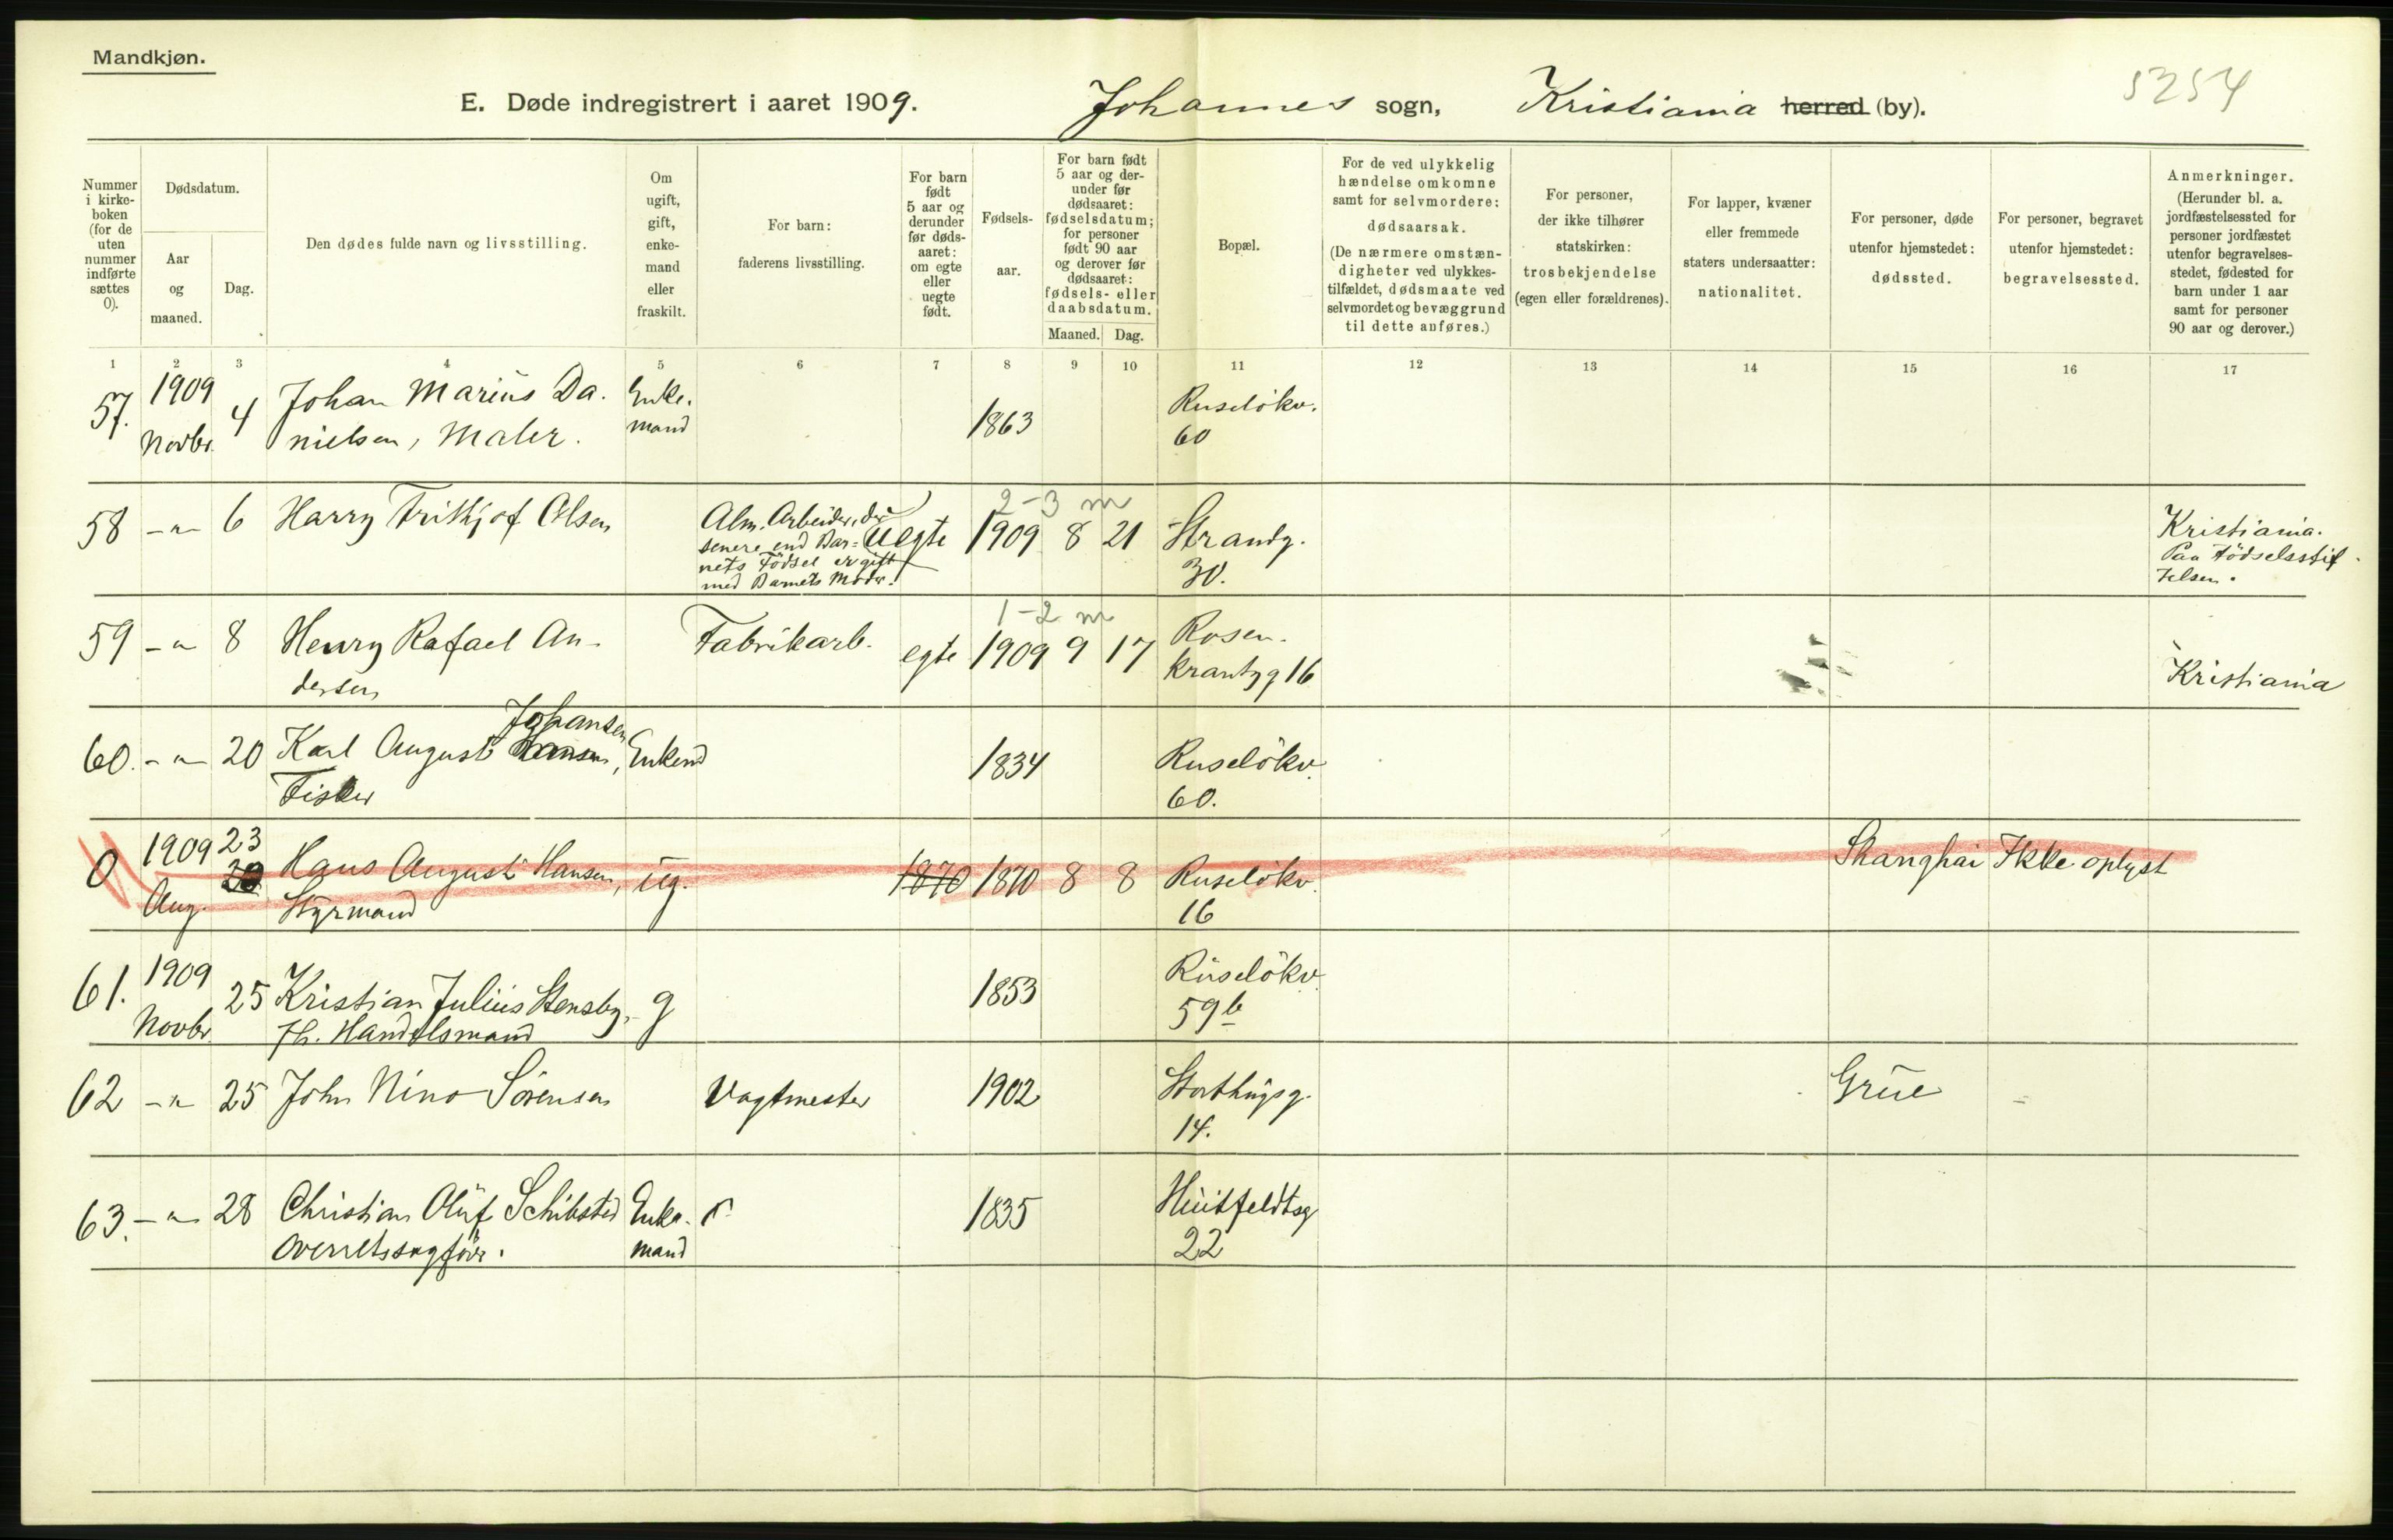 Mandkjøn.
5254
E. Døde indregistrert i aaret 1909. Johannes sogn, Kristiania herred (by).
Nummer i kirke-boken (for de uten nummer indførte sættes 0).
Dødsdatum.
Aar og maaned.
Dag.
Den dødes fulde navn og livsstilling.
Om ugift, gift, enke-mand eller fraskilt.
For barn: faderens livsstilling.
For barn født 5 aar og derunder før døds-aaret: om egte eller uegte født.
Fødsels-aar.
For barn født 5 aar og der-under før dødsaaret: fødselsdatum; for personer født 90 aar og derover før dødsaaret: fødsels- eller daabsdatum.
Maaned. Dag.
Bopæl.
For de ved ulykkelig hændelse omkomne samt for selvmordere: dødsaarsak. (De nærmere omstæn-digheter ved ulykkes-tilfældet, dødsmaate ved selvmordet og bevæggrund til dette anføres.)
For personer, der ikke tilhører statskirken: trosbekjendelse (egen eller forældrenes).
For lapper, kvæner eller fremmede staters undersaatter: nationalitet.
For personer, døde utenfor hjemstedet: dødssted.
For personer, begravet utenfor hjemstedet: begravelsessted.
Anmerkninger. (Herunder bl. a. jordfæstelsessted for personer jordfæstet utenfor begravelses-stedet, fødested for barn under 1 aar samt for personer 90 aar og derover.)
1 2 3 4 5 6 7 8 9 10 11 12 13 14 15 16 17
57. 1909 Novbr. 4 Johan Marius Da. Enke. 1863 Ruselökv.
nielsen, Maler. mand 60
2-3 m
58 -"- 6 Harry Frithjof Olsen Alm. Arbeider, der uegte 1909 8 21 Strandg. Kristiania.
senere end Bar= 30. Paa Födselsstif
nets Födsel er gift telsen.
med Barnets Moder.
1-2 m
59 -"- 8 Henry Rafael An- Fabrikarb. egte 1909 9 17 Rosen- Kristiania
dersen krantzg 16
Johansen
60. -"- 20 Karl August Hansen, Enkemd 1834 Ruselökv.
Fisker 60.
0 1909 Aug. 23 Hans August Hansen, ug. 1870 1870 8 8 Ruselökv. Shanghai Ikke oplyst
Styrmand 16
61. 1909 Novbr. 25 Kristian Julius Stensby, g 1853 Ruselökv.
Fh. Handelsmand 59b
62 -"- 25 John Nino Sörensen Vagtmester 1902 Storthingsg. Grue -
14.
63. -"- 28 Christian Oluf Schibsted Enke- 1835 Huitfeldtsg
Overretssagförer. mand 22